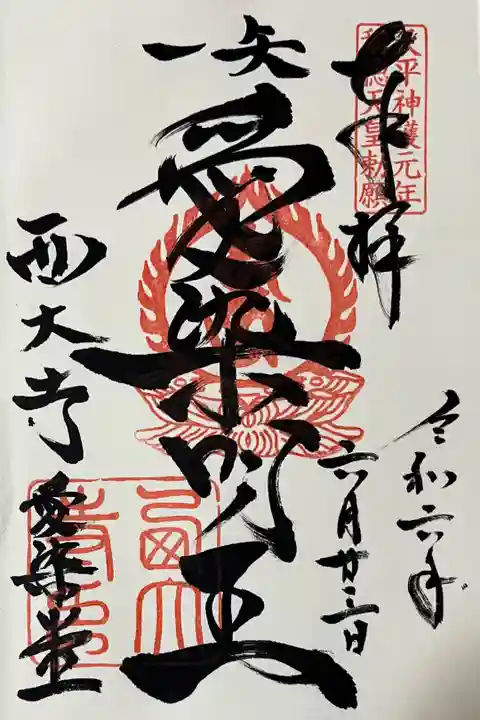 天平神護元年
稱徳天皇勅願
奉拝
令和六年
六月廿三日
一矢
愛染明王
西大寺
愛染堂
西大寺印